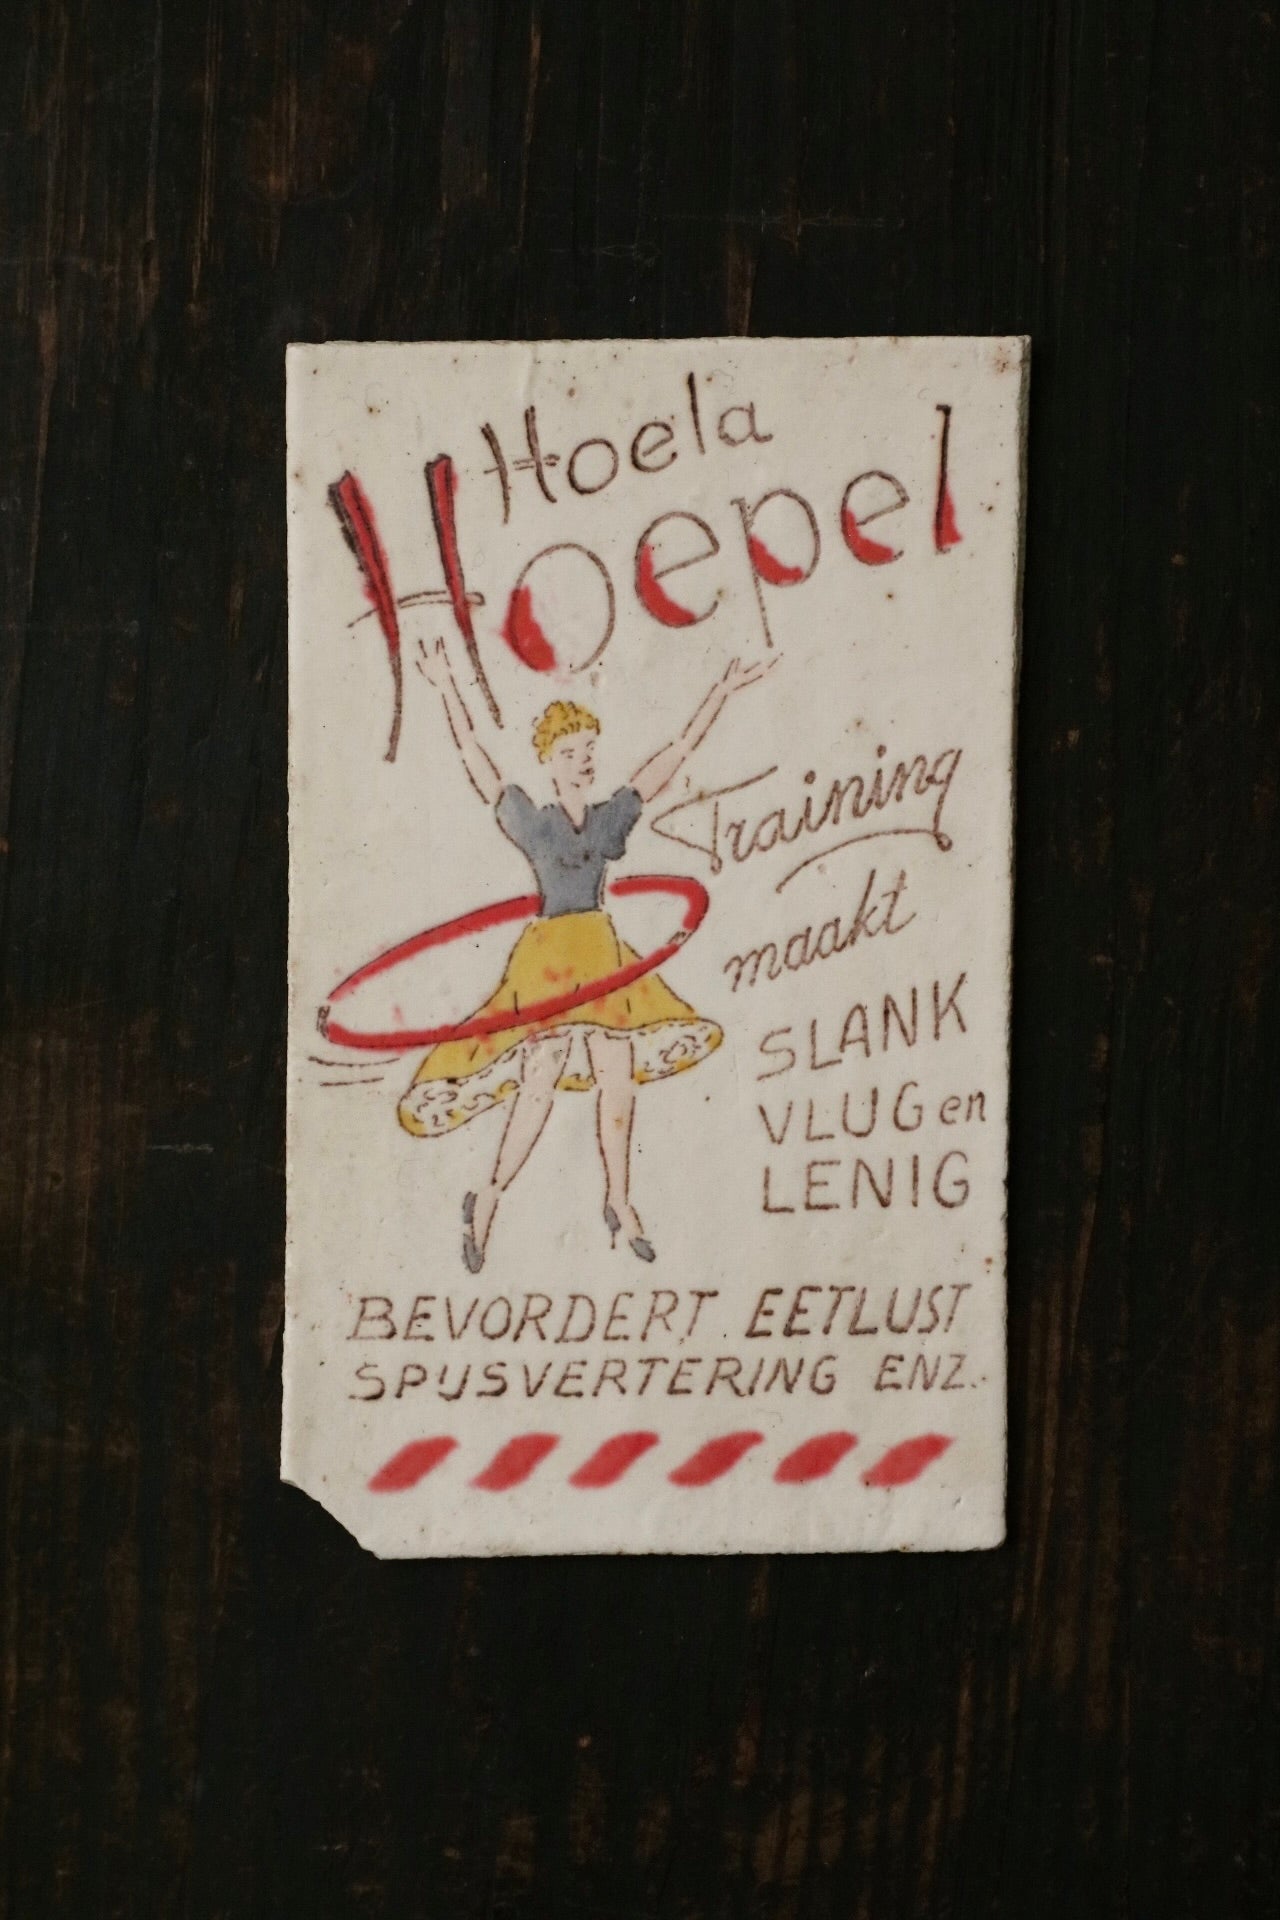 Hoela
Hoepel
Training
maakt
SLANK
VLUG en
LENIG
BEVORDERT EETLUST
SPIJSVERTERING ENZ.